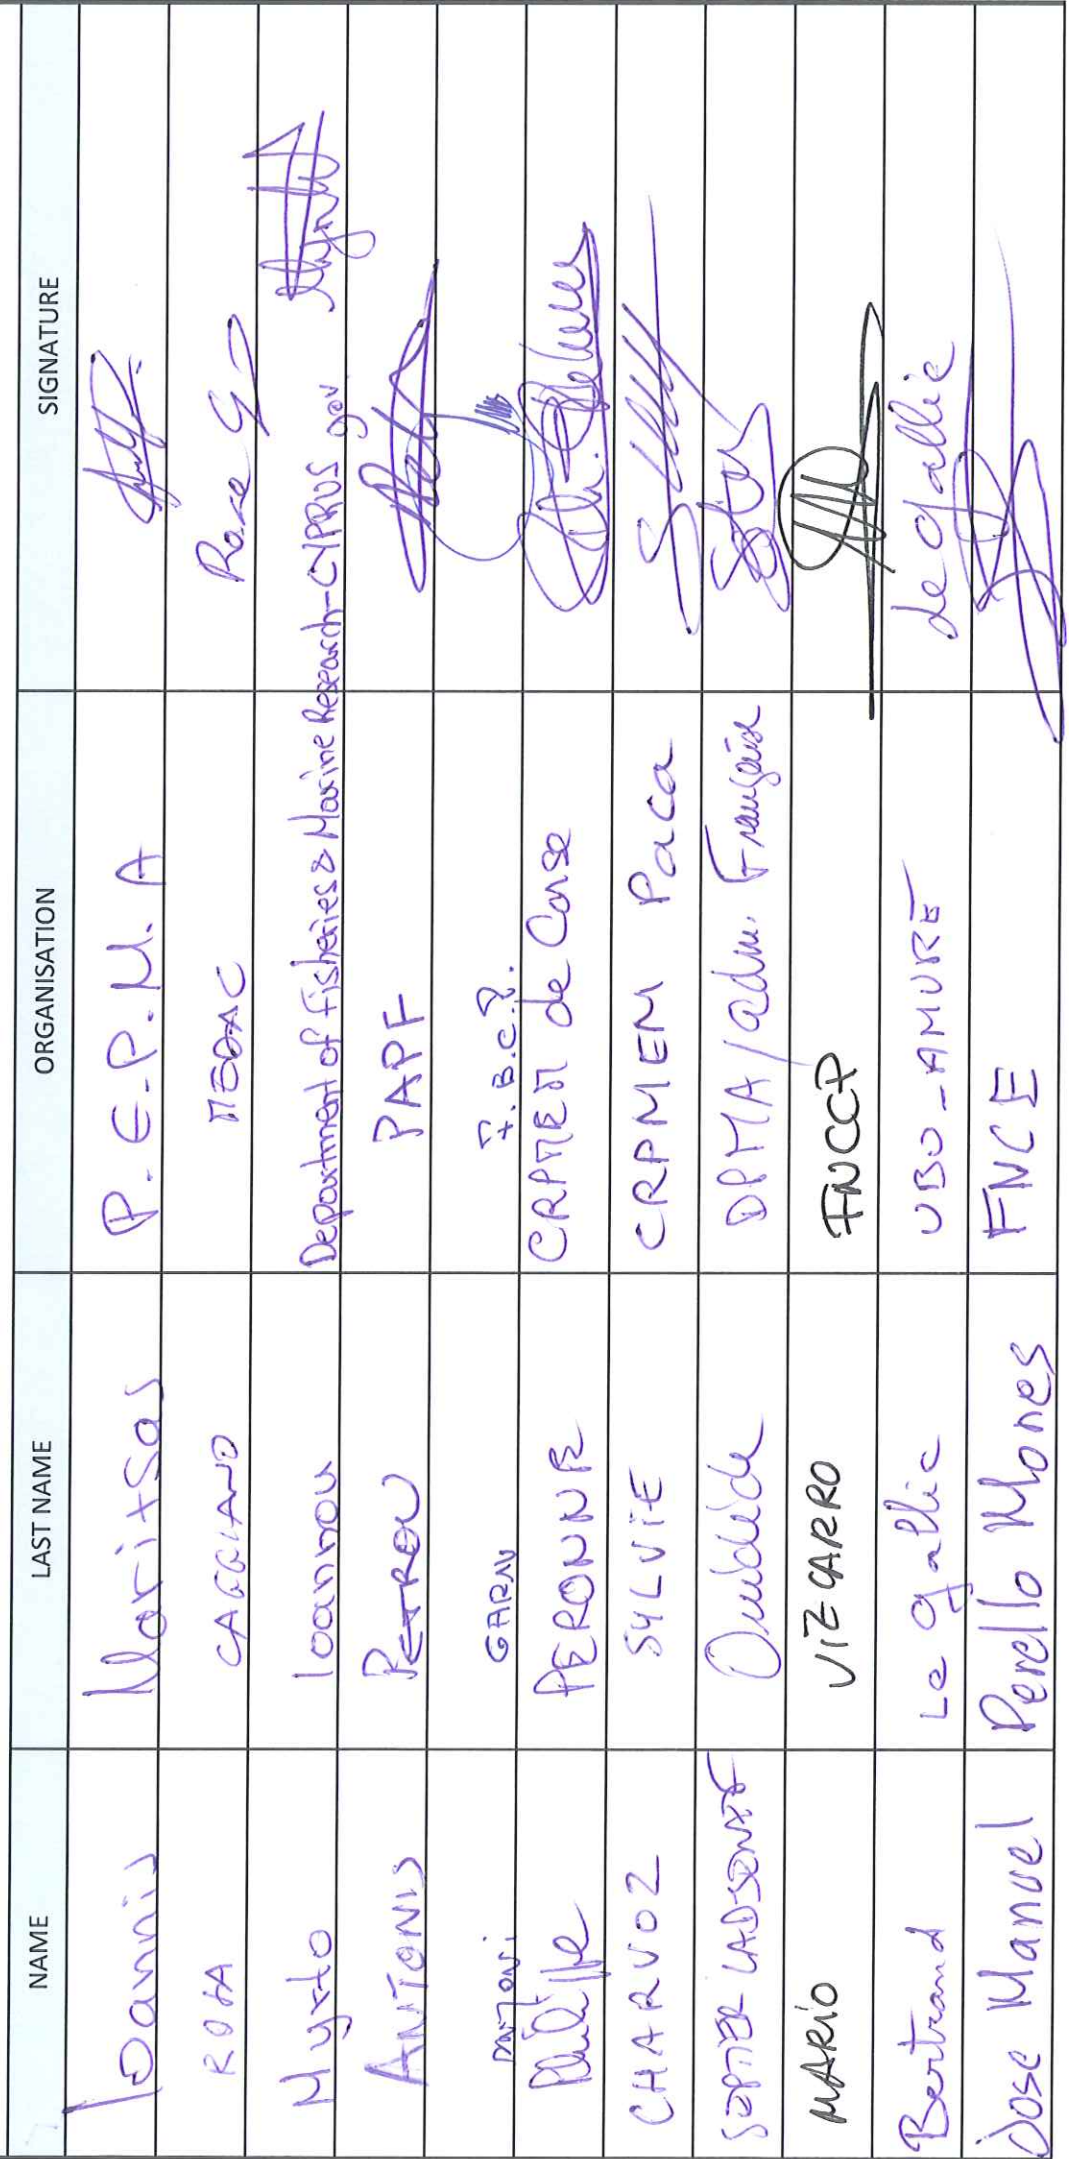 NAME LAST NAME ORGANISATION SIGNATURE
Ioannis Maritsas P.E.P.M.A
ROSA CAGGIANO MEDAC Rosa G
Myrto Ioannou Department of Fisheries & Marine Research-CYPRUS gov
ANTONIS PETROU PAPF
ANTONI GARAU F.B.C.P.
Philippe PERONNE CRPMEM de Corse
CHARVOZ SYLVIE CRPMEM Paca
DPMA/adm. Française
MARIO VIZCARRO FNCCP
Bertrand Le Gallic UBO-AMURE Le Gallic
Jose Manuel Perello Mones FNCE